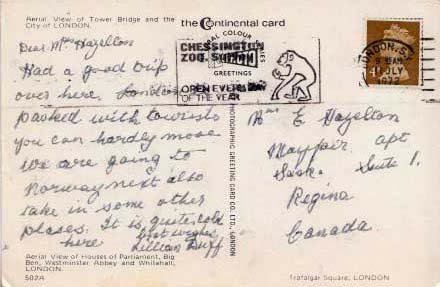 Aerial View of Tower Bridge and the
City of LONDON.
the Continental card
Dear Mrs Hazelton
Had a good trip
over here. London
packed with tourists
you can hardly move
We are going to
Norway next also
take in some other
places. It is quite cold
here best wishes
Lillian Duff
Aerial View of Houses of Parliament, Big
Ben, Westminster Abbey and Whitehall,
LONDON.
502A
NATURAL COLOUR SERIES
CHESSINGTON
ZOO, SURREY
GREETINGS
OPEN EVERY DAY
OF THE YEAR
PHOTOGRAPHIC GREETING CARD CO. LTD., LONDON
LONDON. S.
AM
JULY
Mrs E Hazelton
Mayfair apt
Sask. Suite 1.
Regina
Canada
Trafalgar Square, LONDON